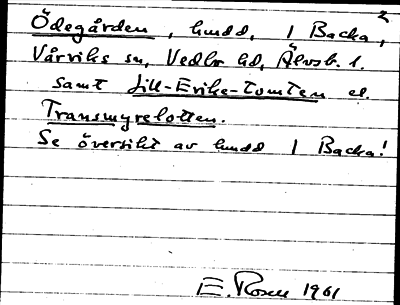 2
Ödegården, hmdd, 1 Backa,
Vårviks sn, Vedbo hd, Älvsb. l.
samt Lill-Eriks-tomten el.
Transmyrelotten.
Se översikt av hmdd 1 Backa!
E. Rosell 1961